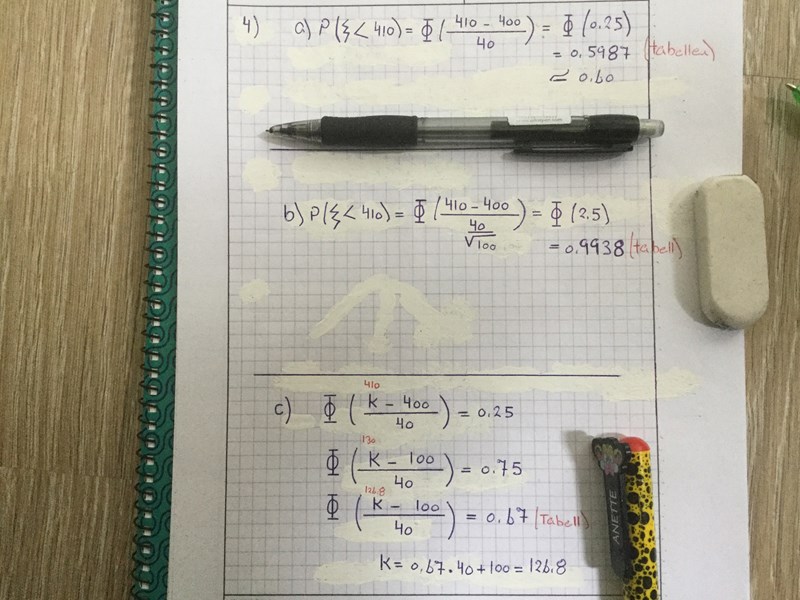 4) a) P(ξ < 410) = Φ(410 - 400 / 40) = Φ(0.25)
= 0.5987 (tabellen)
≃ 0.60
b) P(ξ < 410) = Φ(410 - 400 / 40/√100) = Φ(2.5)
= 0.9938 (tabell)
410
c) Φ(K - 400 / 40) = 0.25
130
Φ(K - 100 / 40) = 0.75
126.8
Φ(K - 100 / 40) = 0.67 (Tabell)
K = 0.67 · 40 + 100 = 126.8
ANETTE